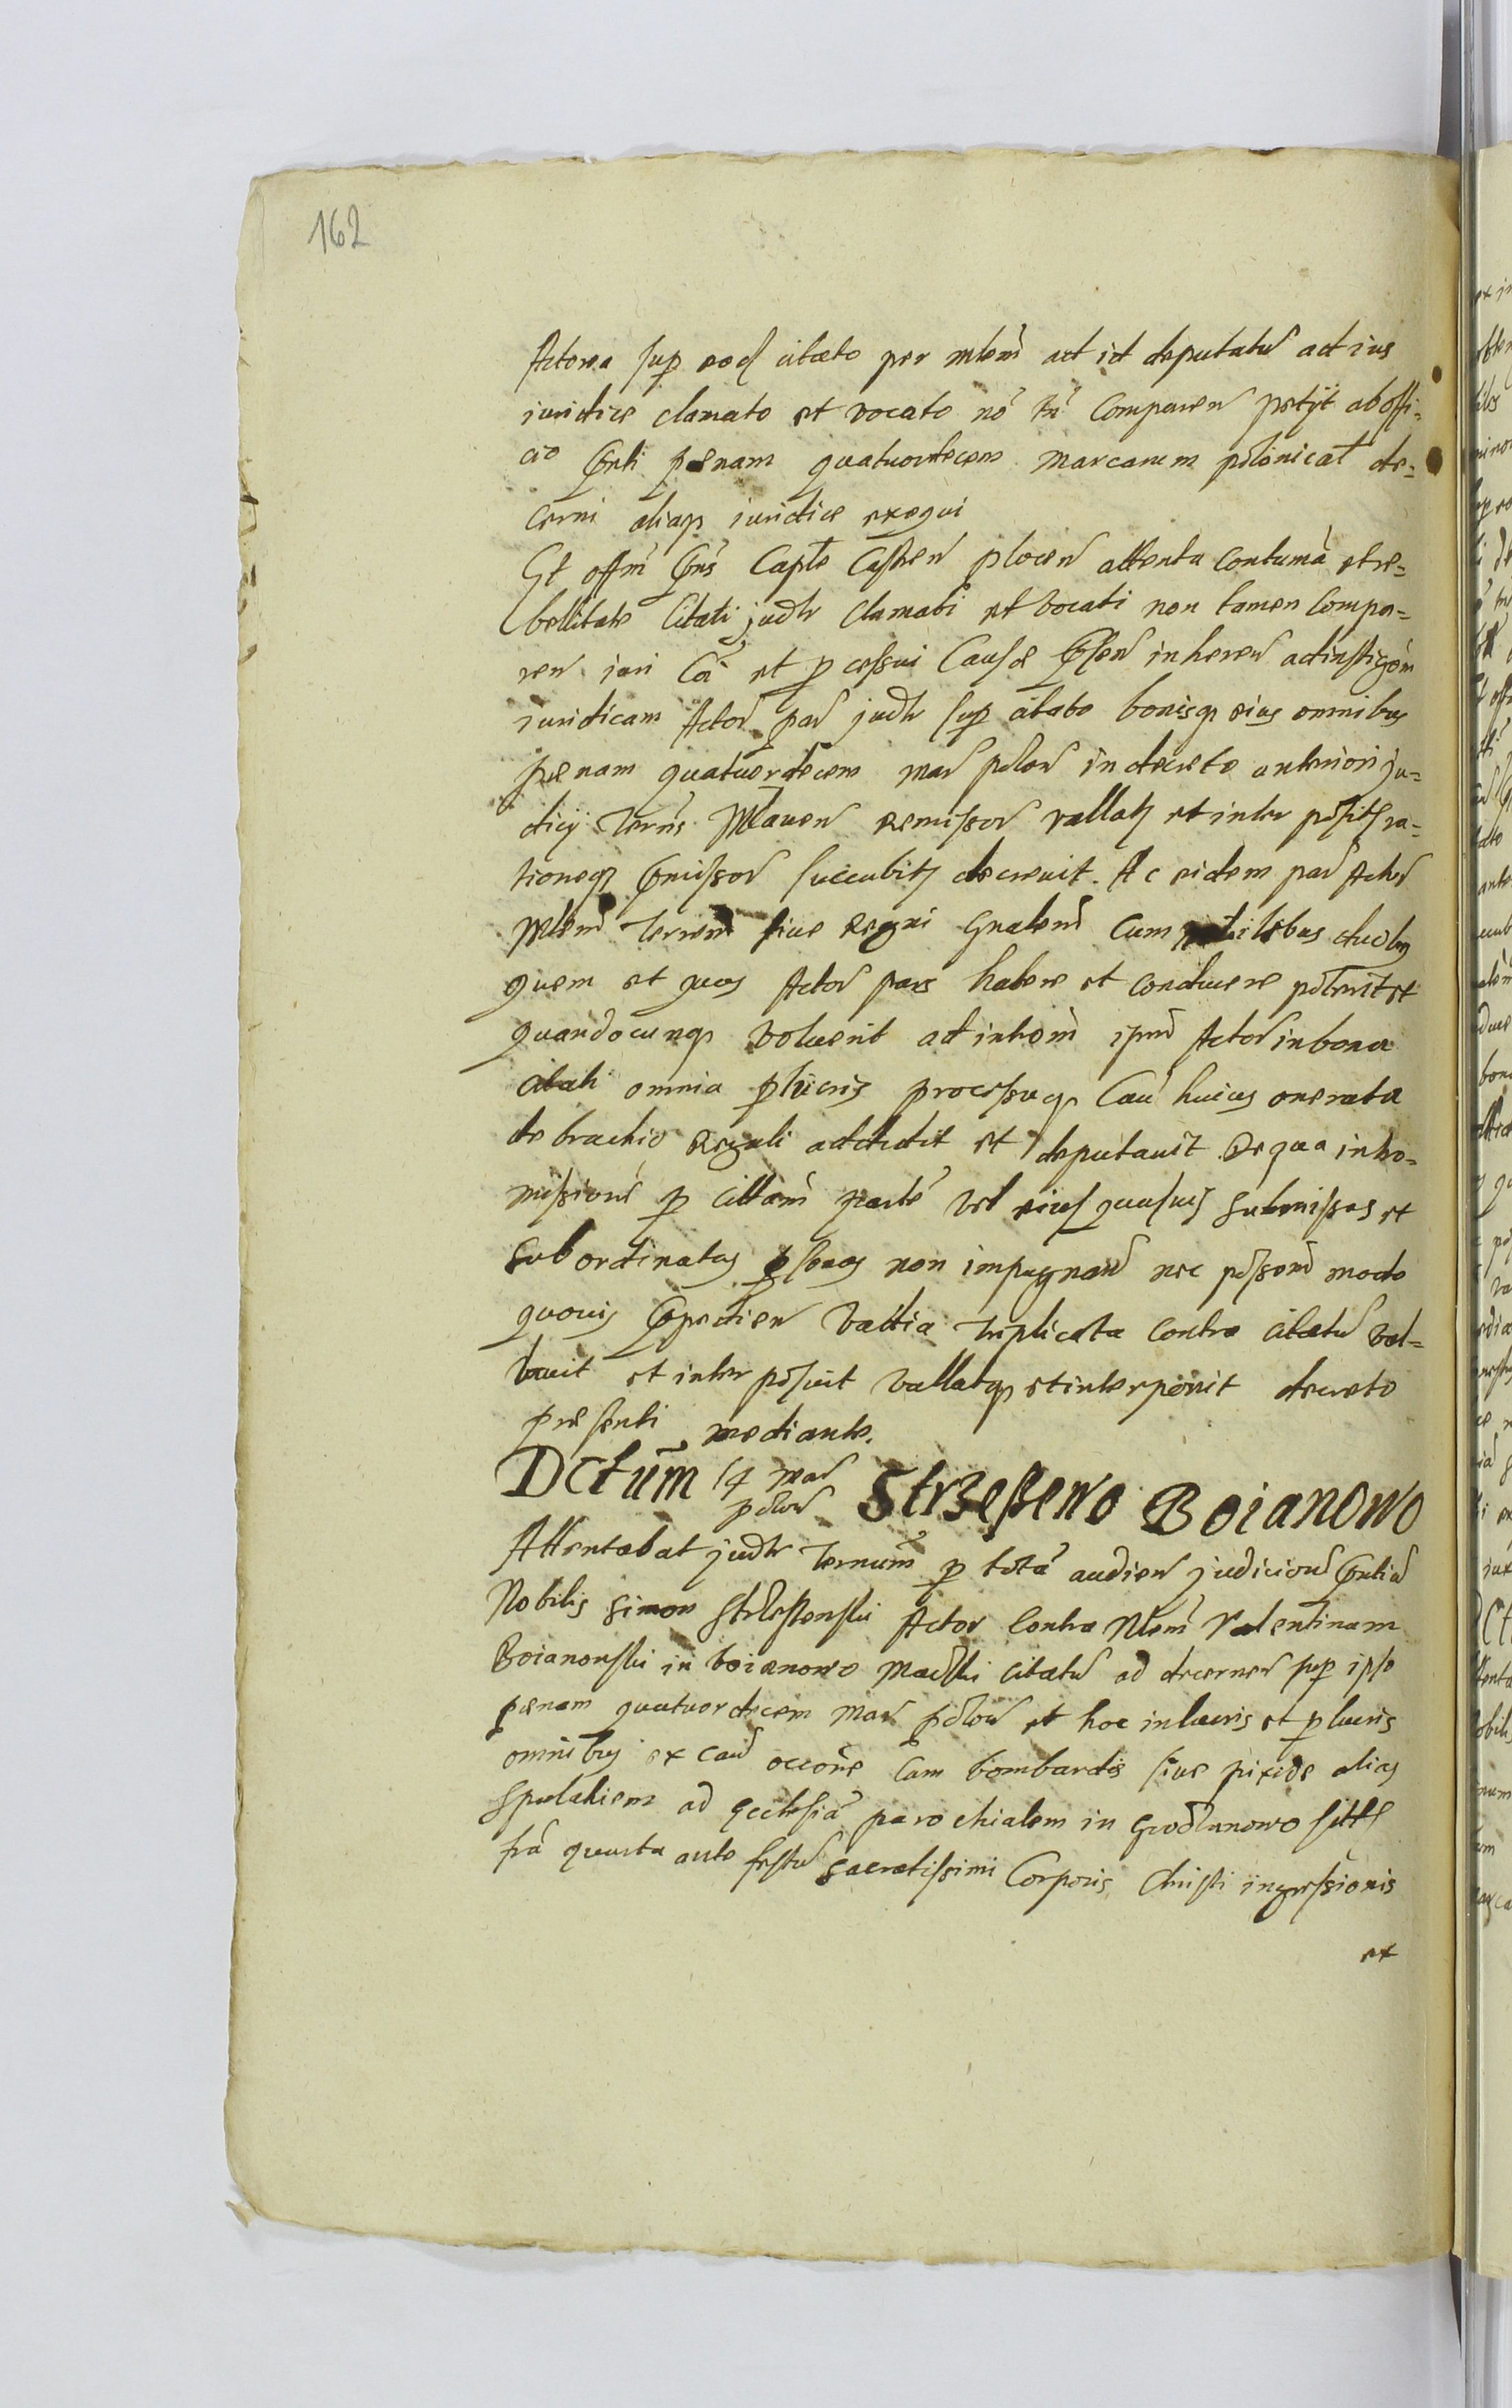 162
Actorea sup eod citato per mlem ad id deputatu ad ius
iuridice clamato et vocato nō tn̄ Comparen petijt ab offi-
cio pn̄ti pœnam quatuordecem marcarum polonicał de-
cerni aliaqȝ iuridice exequi
Et offm̄ pn̄s Capłe Castren plocen attenta contumā et re-
bellitate Citati judr clamati et vocati non tamen Compa-
ren iuri Cōi et pcessui Causæ pn̄sen inheren ad instigōm
iuridicam Actor par judr sup citato bonisqȝ eius omnibus
pœnam quatuordecem mar polon in decreto anteriori ju-
dicij terrīs Mlauen remissor vallatȝ et inter positȝ ra-
tioneqȝ pmissor succubitȝ decreuit. Ac eidem par Actor
Mlem terrem siue Regni Gnalem Cum nobilibus duobȝ
quem et quos Actor pars habere et conducere poterit et
quandocunqȝ voluerit ad introm̄ ipm̄ Actor in bona
citati omnia p lucris processuqȝ Cau huius onerata
de brachio Regali addidit et deputauit. De qua intro-
missione p cittam̄ partē vel eius quasuis submissas et
subordinatas psonas non impugnan nec possend modo
quouis expedien vadia triplicata contra citatu val-
lauit et inter posuit vallatqȝ et interponit decreto
præsenti mediante.
Dctum̄ 14 mar
polon Strzeszewo Boianowo
Attentabat judr ternum̄ p totā audien judiciou pn̄tiu
Nobilis Simon Strzeszewski Actor Contra Nlem̄ Valentinum
Boianowski in boianowo citatu ad decernen sup ipso
pœnam quatuordecem mar polon et hoc in lucris et p lucris
omnibus ex cau occōne cum bombardis siue pixide alias
ad Ecclesiā parochialem in Grodzanowo
fra quarta ante festu sacratissimi Corporis Christi ingressionis
ex